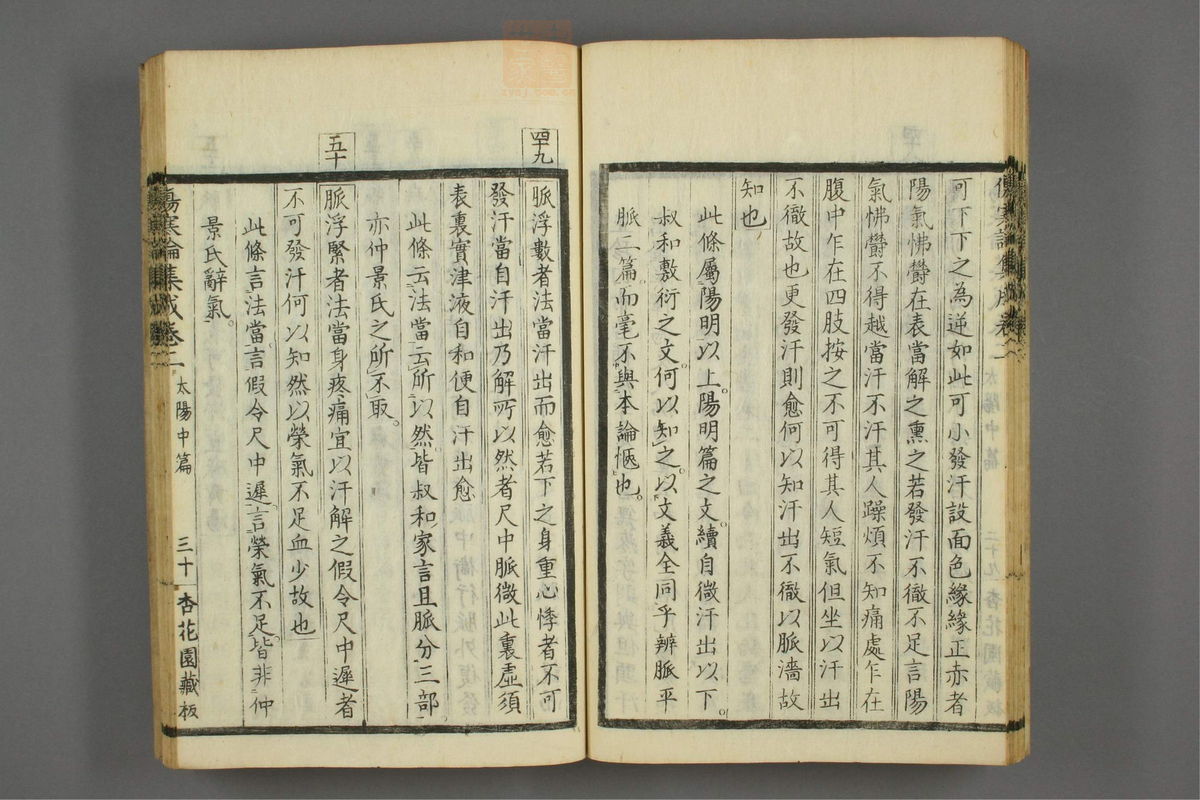 可下下之為逆如此可小發汗設面色緣緣正赤者
陽氣怫欎在表當解之熏之若發汗不徹不足言陽
氣怫欎不得越當汗不汗其人躁煩不知痛處乍在
腹中乍在四肢按之不可得其人短氣但坐以汗出
不徹故也更發汗則愈何以知汗出不徹以脈濇故
知也
此條屬陽明以上陽明篇之文續自微汗出以下
叔和敷衍之文何以知之以文義全同乎辨脈平
脈二篇而毫不與本論愜也
四十九
脈浮數者法當汗出而愈若下之身重心悸者不可
發汗當自汗出乃解所以然者尺中脈微此裏虛須
表裏實津液自和便自汗出愈
此條云法當云所以然皆叔和家言且脈分三部
亦仲景氏之所不取
五十
脈浮緊者法當身疼痛宜以汗解之假令尺中遲者
不可發汗何以知然以榮氣不足血少故也
此條言法當言假令尺中遲言榮氣不足皆非仲
景氏辭氣
傷寒論集成卷二 太陽中篇 三十 杏花園藏板